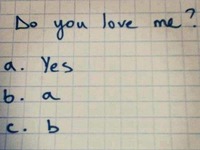 Do you love me?
a. Yes
b. a
c. b